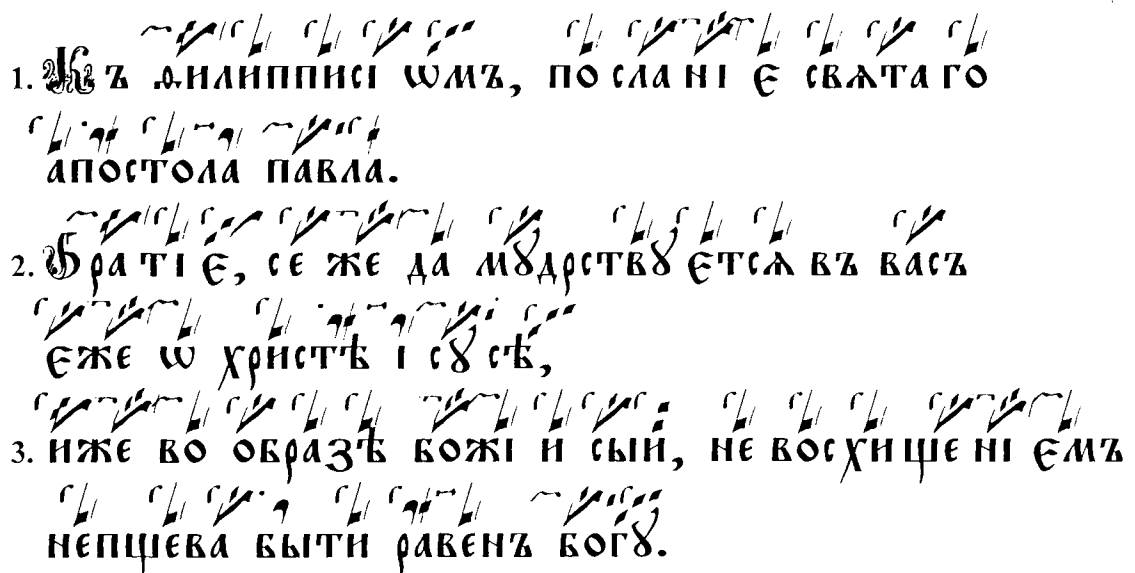 1. Къ ѳилипписі ѡмъ, по сла ні є свѧта го
апостола павла.
2. Бра ті є, се же да мꙋдрствꙋ єтсѧ въ васъ
єже ѡ христѣ і сꙋ сѣ,
3. иже во образѣ божі и сый, не восхищені ємъ
непщева быти равенъ богꙋ.